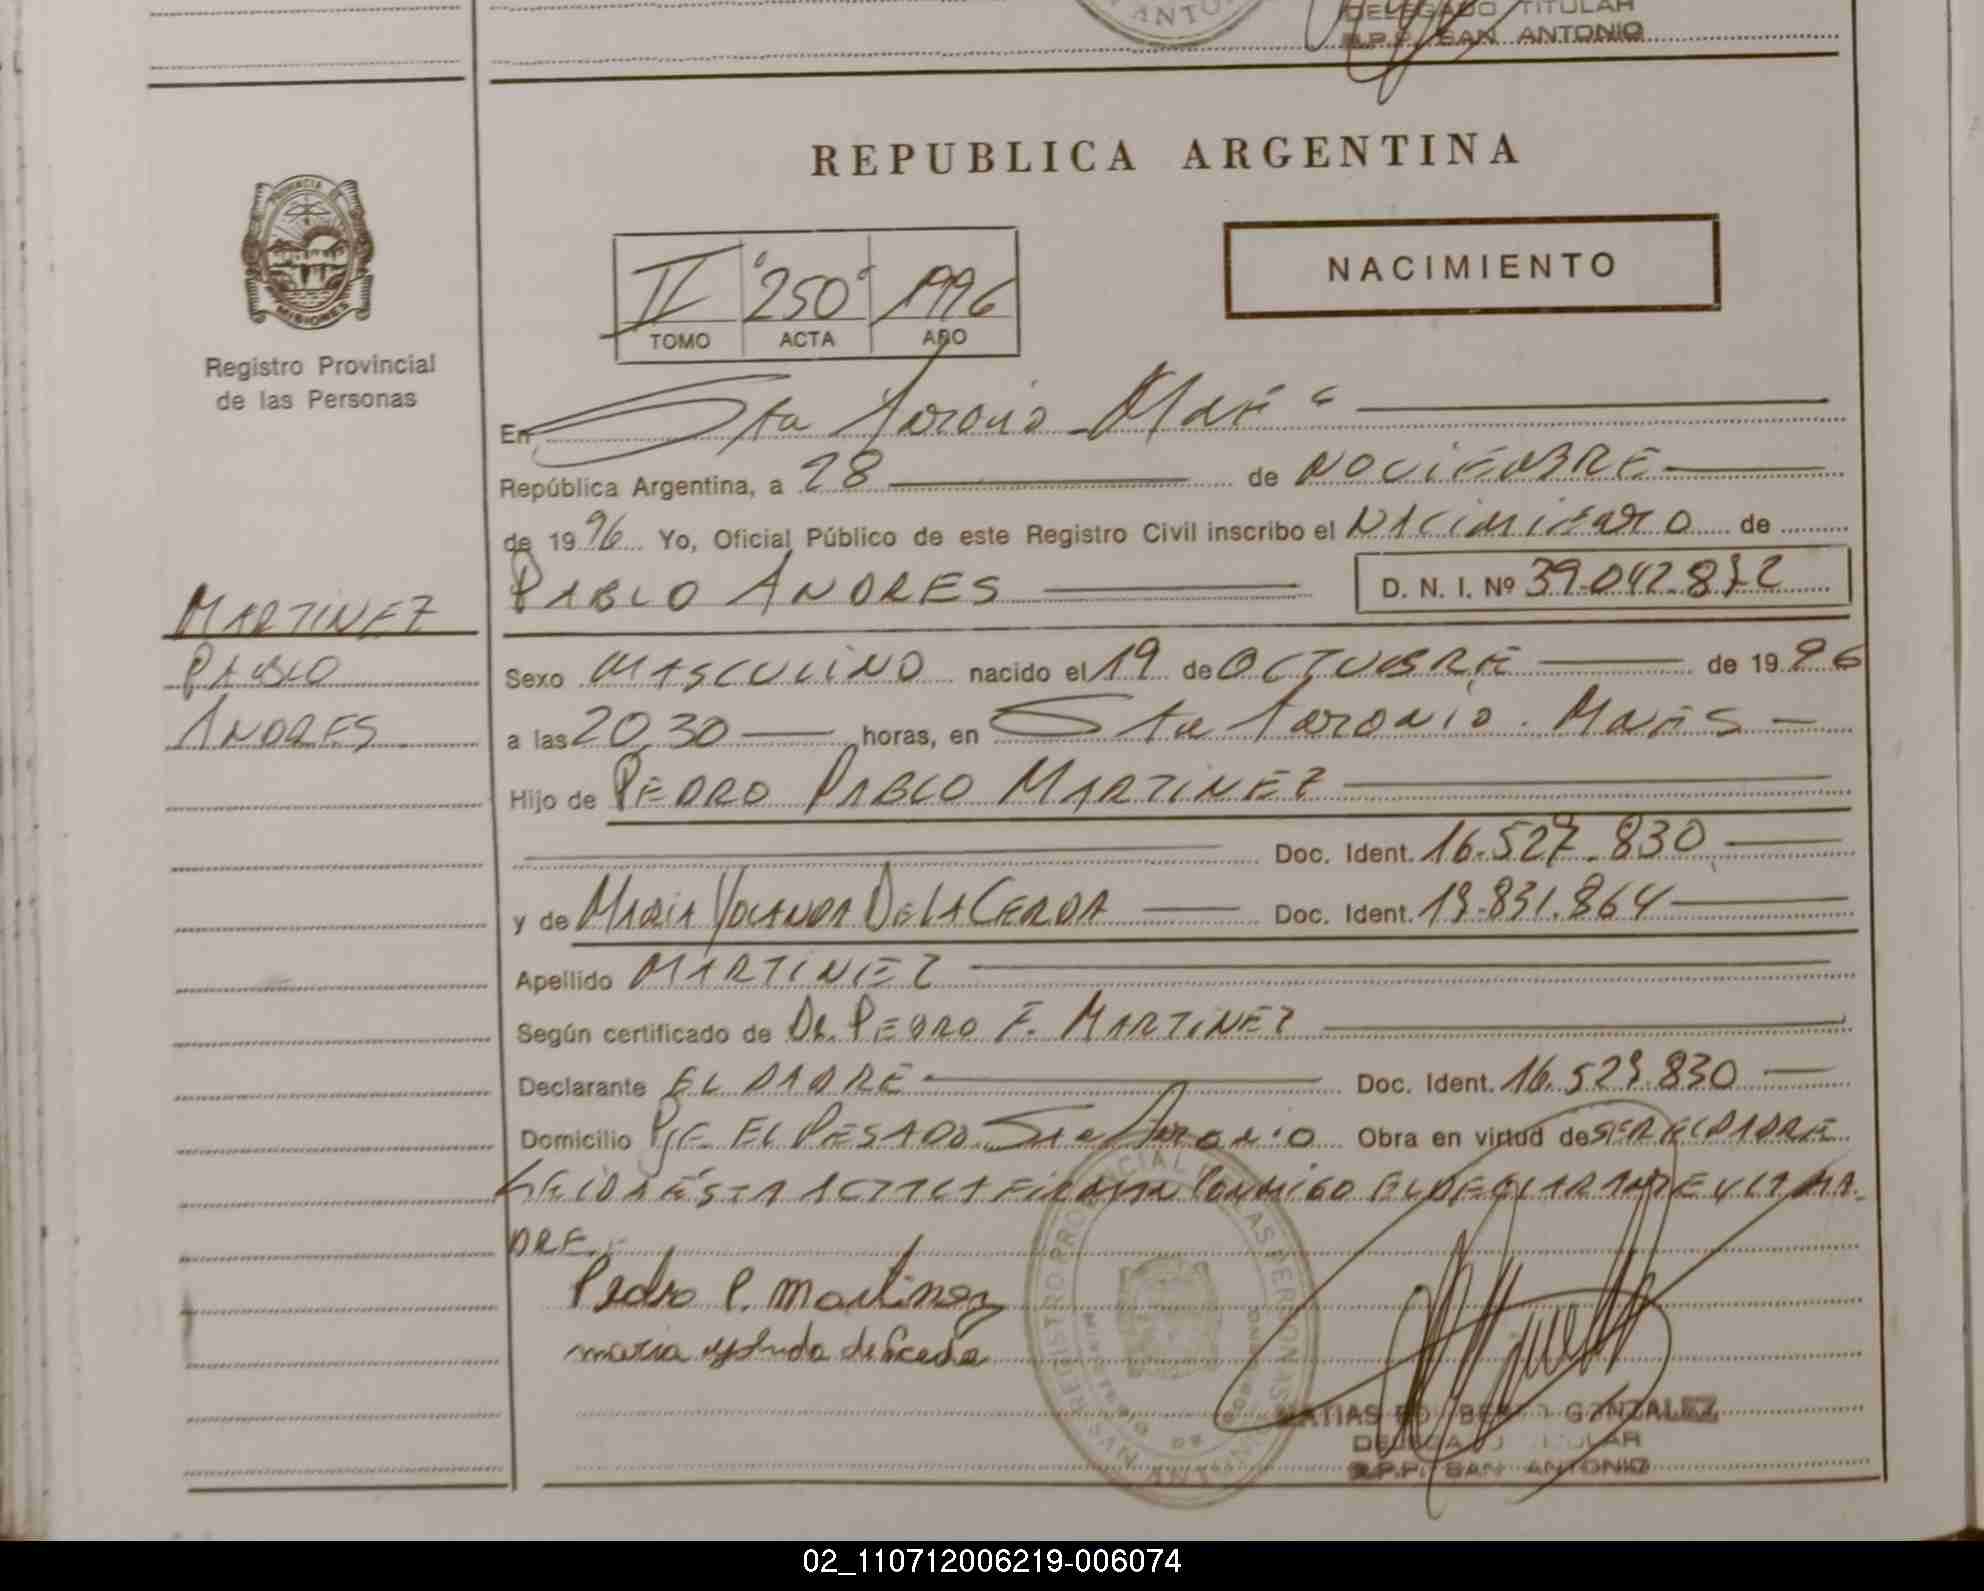 DELEGADO TITULAR
R.P.P. SAN ANTONIO
REPUBLICA ARGENTINA
PROVINCIA DE
MISIONES
Registro Provincial
de las Personas
II "250" 1996
TOMO ACTA AÑO
NACIMIENTO
En Sta Antonio Mnes
República Argentina, a 28 de NOVIEMBRE
de 1996 Yo, Oficial Público de este Registro Civil inscribo el NACIMIENTO de
PABLO ANDRES D. N. I. Nº 39.042.872
MARTINEZ
PABLO
ANDRES
Sexo MASCULINO nacido el 19 de OCTUBRE de 1996
a las 20,30 horas, en Sta Antonio. Mnes
Hijo de PEDRO PABLO MARTINEZ
Doc. Ident. 16.527.830
y de MARIA YOLANDA DE LA CERDA Doc. Ident. 19.831.864
Apellido MARTINEZ
Según certificado de DR. PEDRO F. MARTINEZ
Declarante EL PADRE Doc. Ident. 16.527.830
Domicilio Pje EL PESADO Sta Antonio Obra en virtud de SER EL PADRE
LEIDA ESTA ACTA LA FIRMAN CONMIGO EL DECLARANTE Y LA MA-
DRE.
Pedro P. Martinez
maria yolanda de la cerda
REGISTRO PROVINCIAL DE LAS PERSONAS
MATIAS ROBERTO GONZALEZ
DELEGADO TITULAR
R.P.P. SAN ANTONIO
02_110712006219-006074